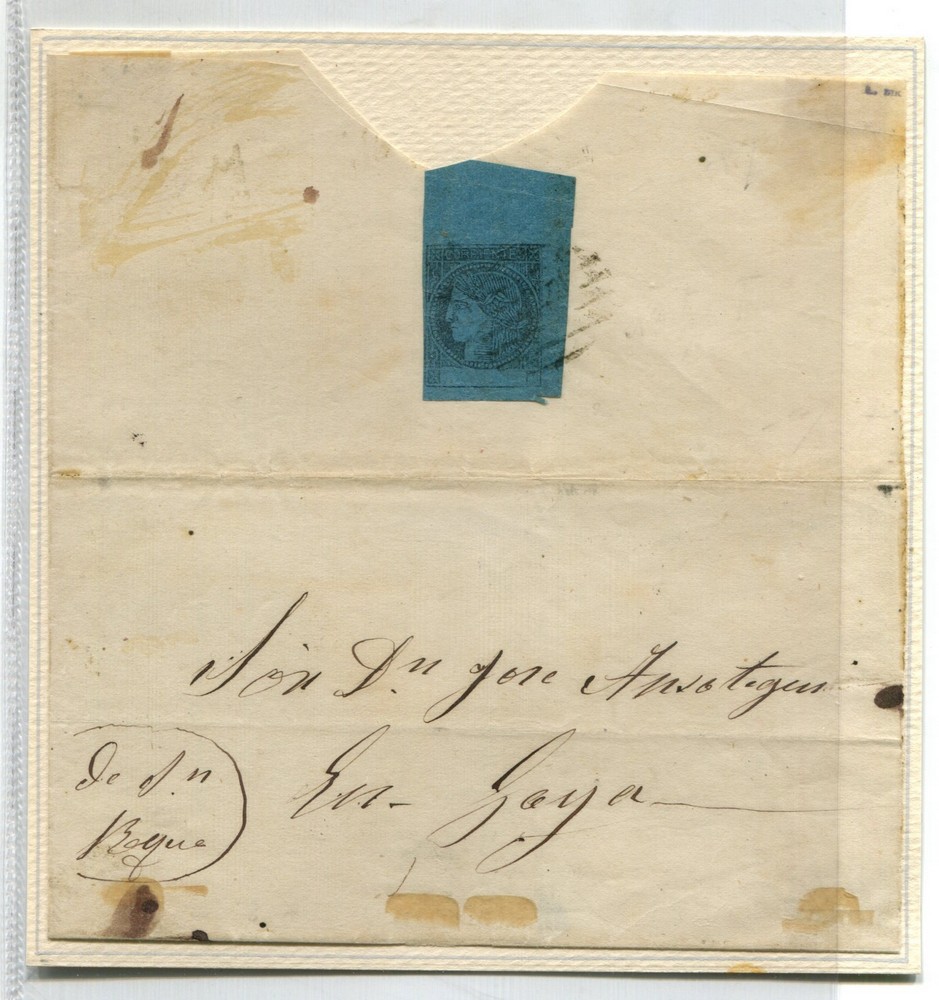 CORRIENTES
Sor Dn Jose Ansotegui
En Goya
de Sn
Roque